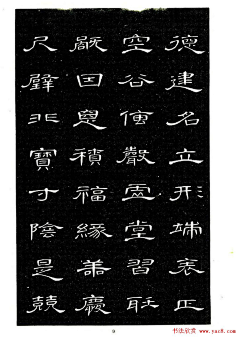 德建名立形端表正
空谷傳聲虛堂習聽
禍因惡積福緣善慶
尺璧非寶寸陰是競
9
书法欣赏 www.yac8.com